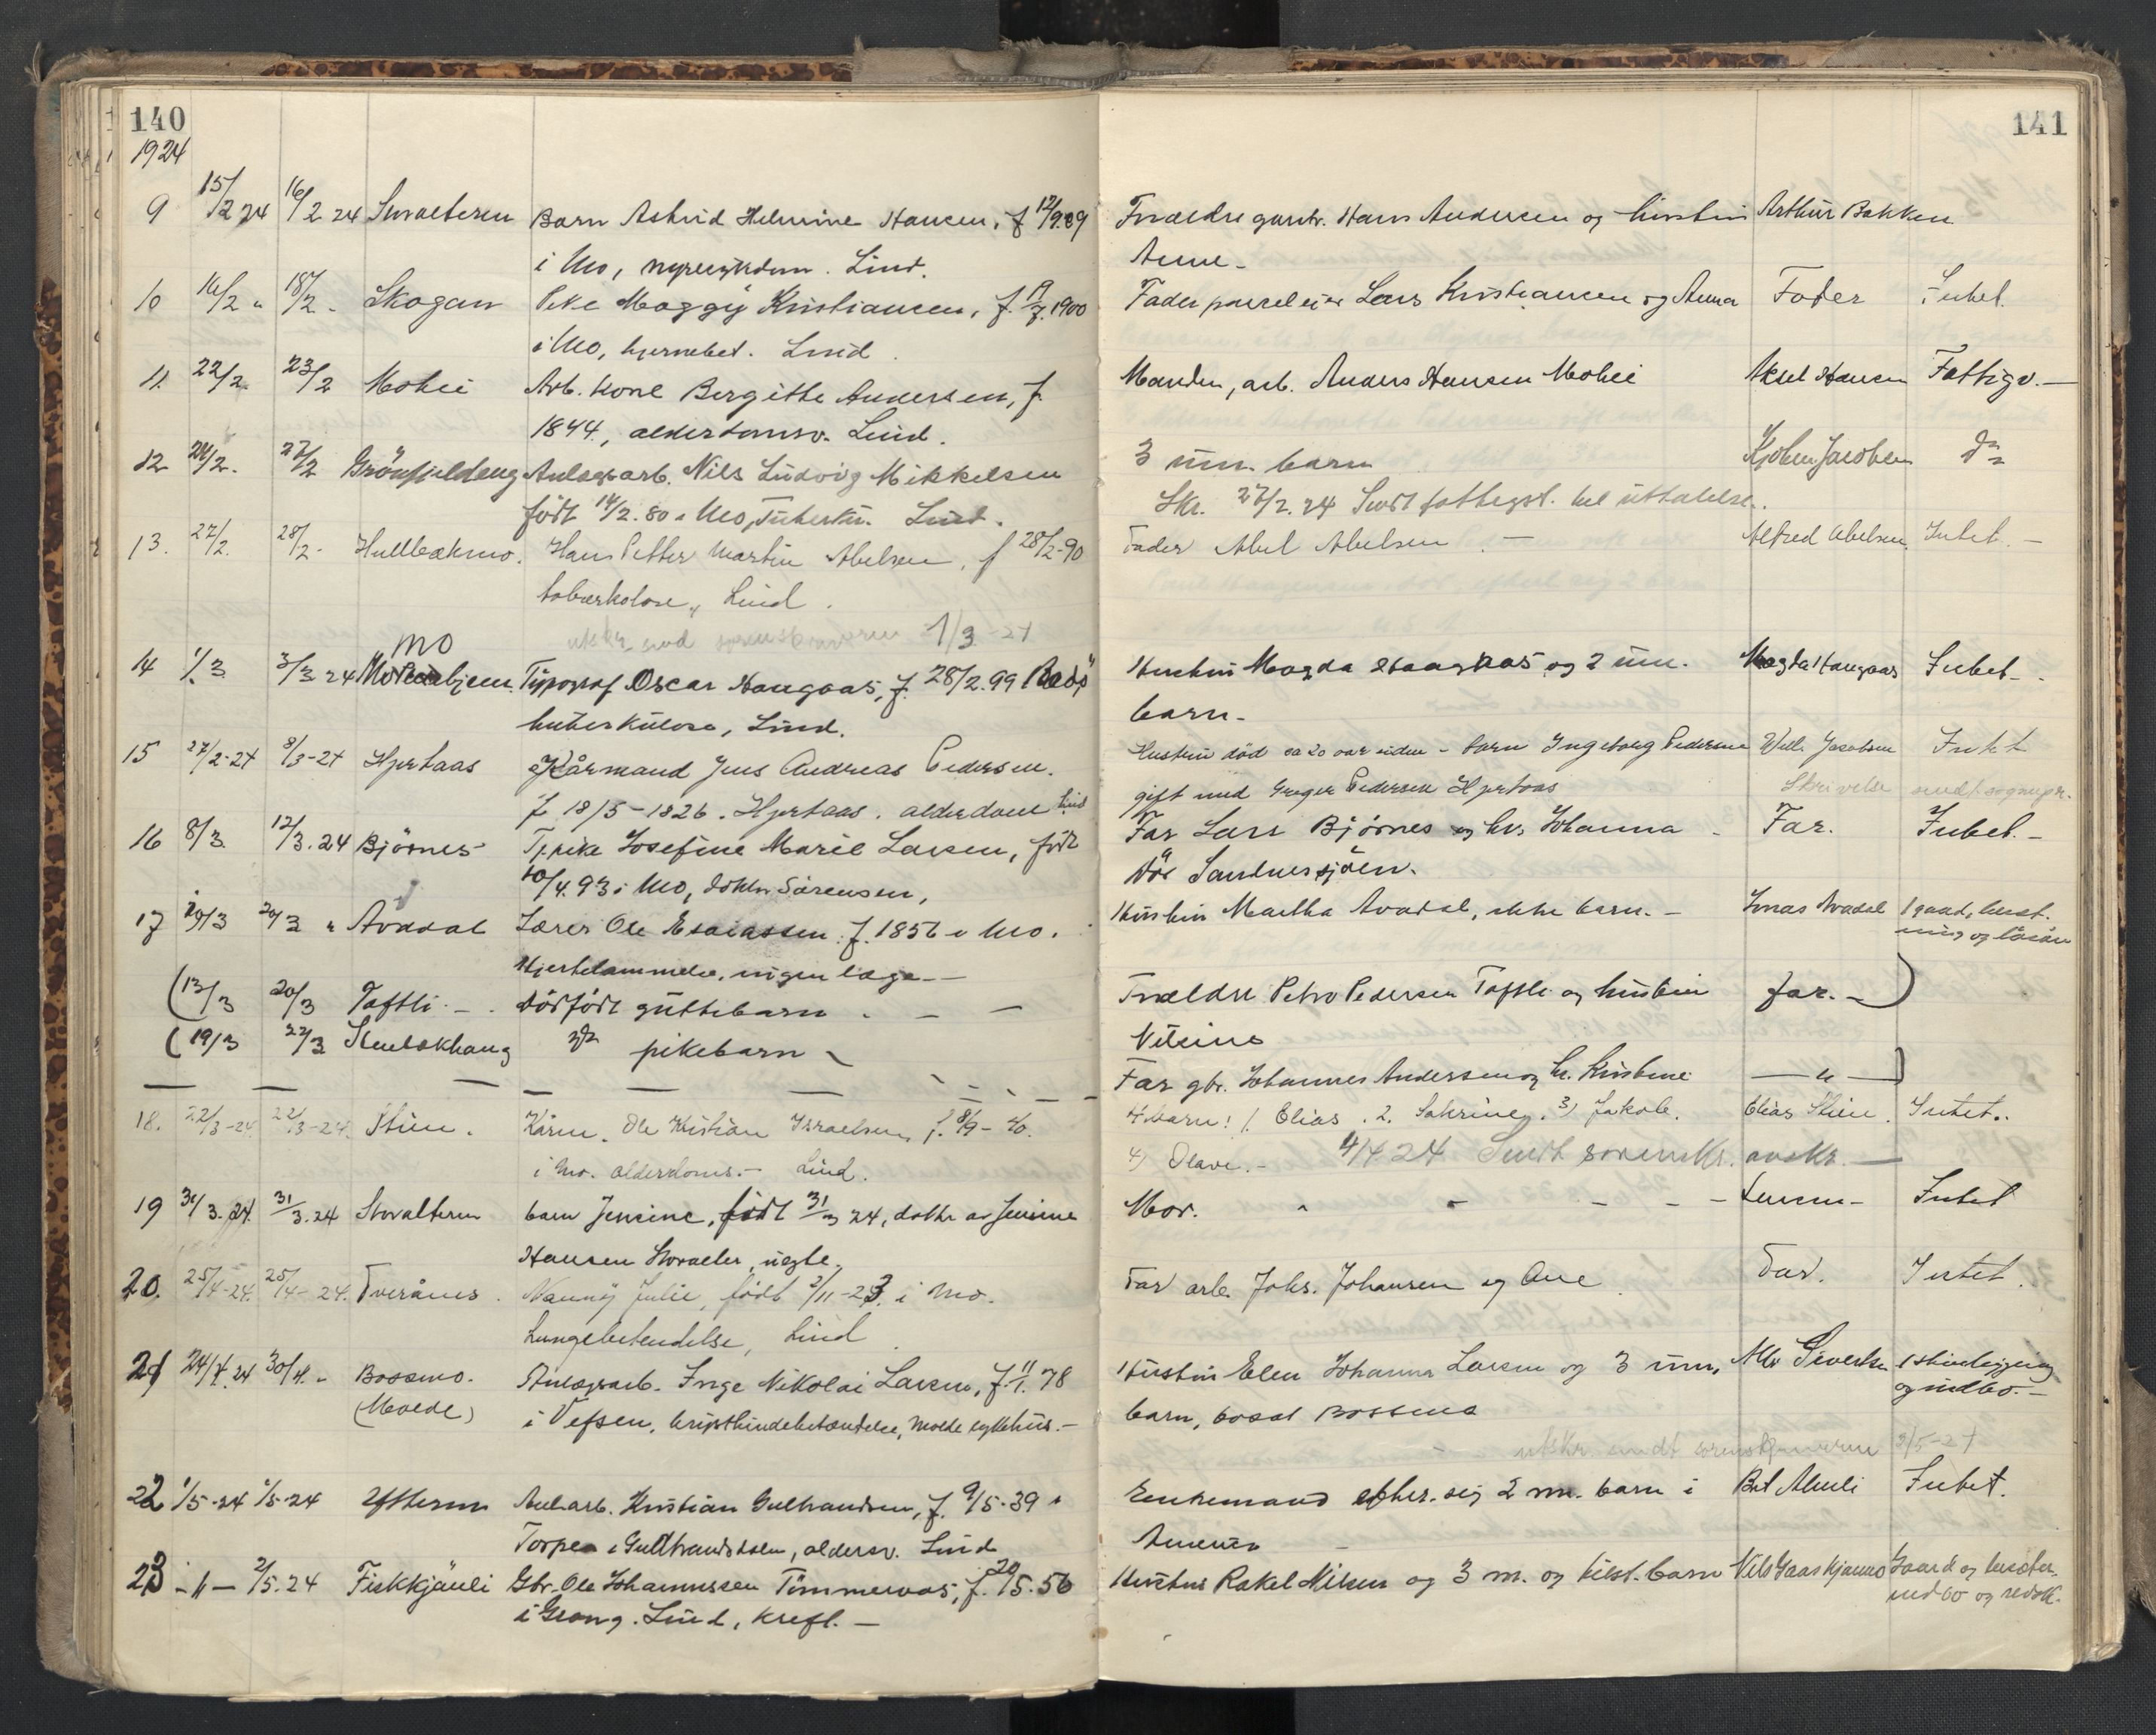 140
1924
9 15/2 24 16/2 24 Barn Astrid Helmine Hansen, f 12/9.09
i Mo, nyresykdom. Lind.
10 16/2 " 18/2 - Skogan Pike Maggy Kristiansen, f. 1900
i Mo, hjernebet. Lind.
11. 22/2 23/2 Mohei Arb. kone Bergitte Andersen, f.
1844, alderdomsv. Lind.
12 24/2. 27/2 Grönfjeldaug Anlægsarb. Nils Ludvig Mikkelsen
født 14/2. 80 i Mo, Tuberku. Lind.
13. 27/2. 28/2 - Hans Petter Martin Abelsen, f 28/2-90
Lind.
1/3-24
mo
14 1/3 3/3 24 Typograf Oscar Haugaas, f. 28/2. 99 Rødö
tuberkulose, Lind.
15 27/2-24 8/3-24 Hjertaas Kårmand Jens Andreas Pedersen.
f 18/5-1826. Hjertaas. alderdom Lind
16 8/3 12/3. 24 Bjørnes Tj. pike Josefine Marie Larsen, født
10/4. 93 i Mo, dokter Sørensen,
17 20/3 " Avadal Lærer Ole Esaiassen f. 1856 i Mo.
Hjertelammelse, ingen læge -
(13/3 20/3 Taftli - Dödfödt guttebarn - - -
(19/3 22/3 do pikebarn -
18. 22/3-24 22/3-24. Stien. Kårm. Ole Kristian Israelsen, f. 8/9-40.
i Mo. alderdoms. - Lind.
19 31/3. 24. 31/3. 24 Storalteren barn Jensine, født 31/3 24, datter av Jensine
Hansen Storalter, uegte.
20. 25/4-24. 25/4-24. Tverånes. Nanny Julie, født 2/11-23. i Mo.
Lungebetendelse, Lind
21 24/4. 24 30/4. - Bossmo. Anlægsarb. Inge Nikolai Larsen, f. 11/1. 78
(Molde) i Vefsen, Molde sykehus. -
22 1/5-24 Ytteren Anl. arb. Kristian Gulbrandsen, f. 9/5-39 i
Torpen i Gudbrandsdalen, aldersv. Lind
23 - " - 2/5. 24 Fiskkjönli Gbr. Ole Johannessen Tömmervas, f. 20/5. 56
i Grong. Lind, kreft. -
141
Forældre gaardbr. Hans Andersen og hustru Arthur Bakken
Anne -
Fader parceleier Lars Kristiansen og Anna Fader Intet.
Manden, arb. Anders Hansen Mohei Aksel Hansen Fattigv. -
3 um. barn Jacobsen do
Skr. 27/2. 24 Sendt fattigst. til uttalelse.
Fader Abel Abelsen - Alfred Abelsen. Intet. -
Hustru Magda Haugaas og 2 um. Magda Haugaas Intet -
barn -
Hustru død ca 20 aar siden - barn Ingeborg Pedersen Jacobsen Intet
gift med Greger Pedersen Hjertaas Skrivelse sendt
Far Lars Bjørnes og hr. Johanna - Far. Intet. -
Dör Sandnessjöen.
Hustru Martha Avadal, ikke barn. - Jonas Avadal 1 gaard, besæt.
ning og lösöre
Foreldre Petro Pedersen Taftli og hustru far. - )
Far gbr. Johannes Andersen og h. Kristine - " - )
4 barn: 1. Elias. 2. 3) Jakob. Elias Stien. Intet..
4) Olava. - 4/4 24 Sendt sorenskr. avskr. -
Mor. - - - - Intet
Far arb. Johs. Johansen og Ane Far. Intet.
Hustru Elen Johanna Larsen og 3 um. Sivertsen
barn, bosat Bossmo og indbo. -
utskr. sendt sorenskriveren 3/5-24
Enkemand efter. sig 2 m. barn i Intet.
Amerika -
Hustru Rakel Nilsen og 3 m. og tilst. barn Nils Gaard og
indbo og redsk.